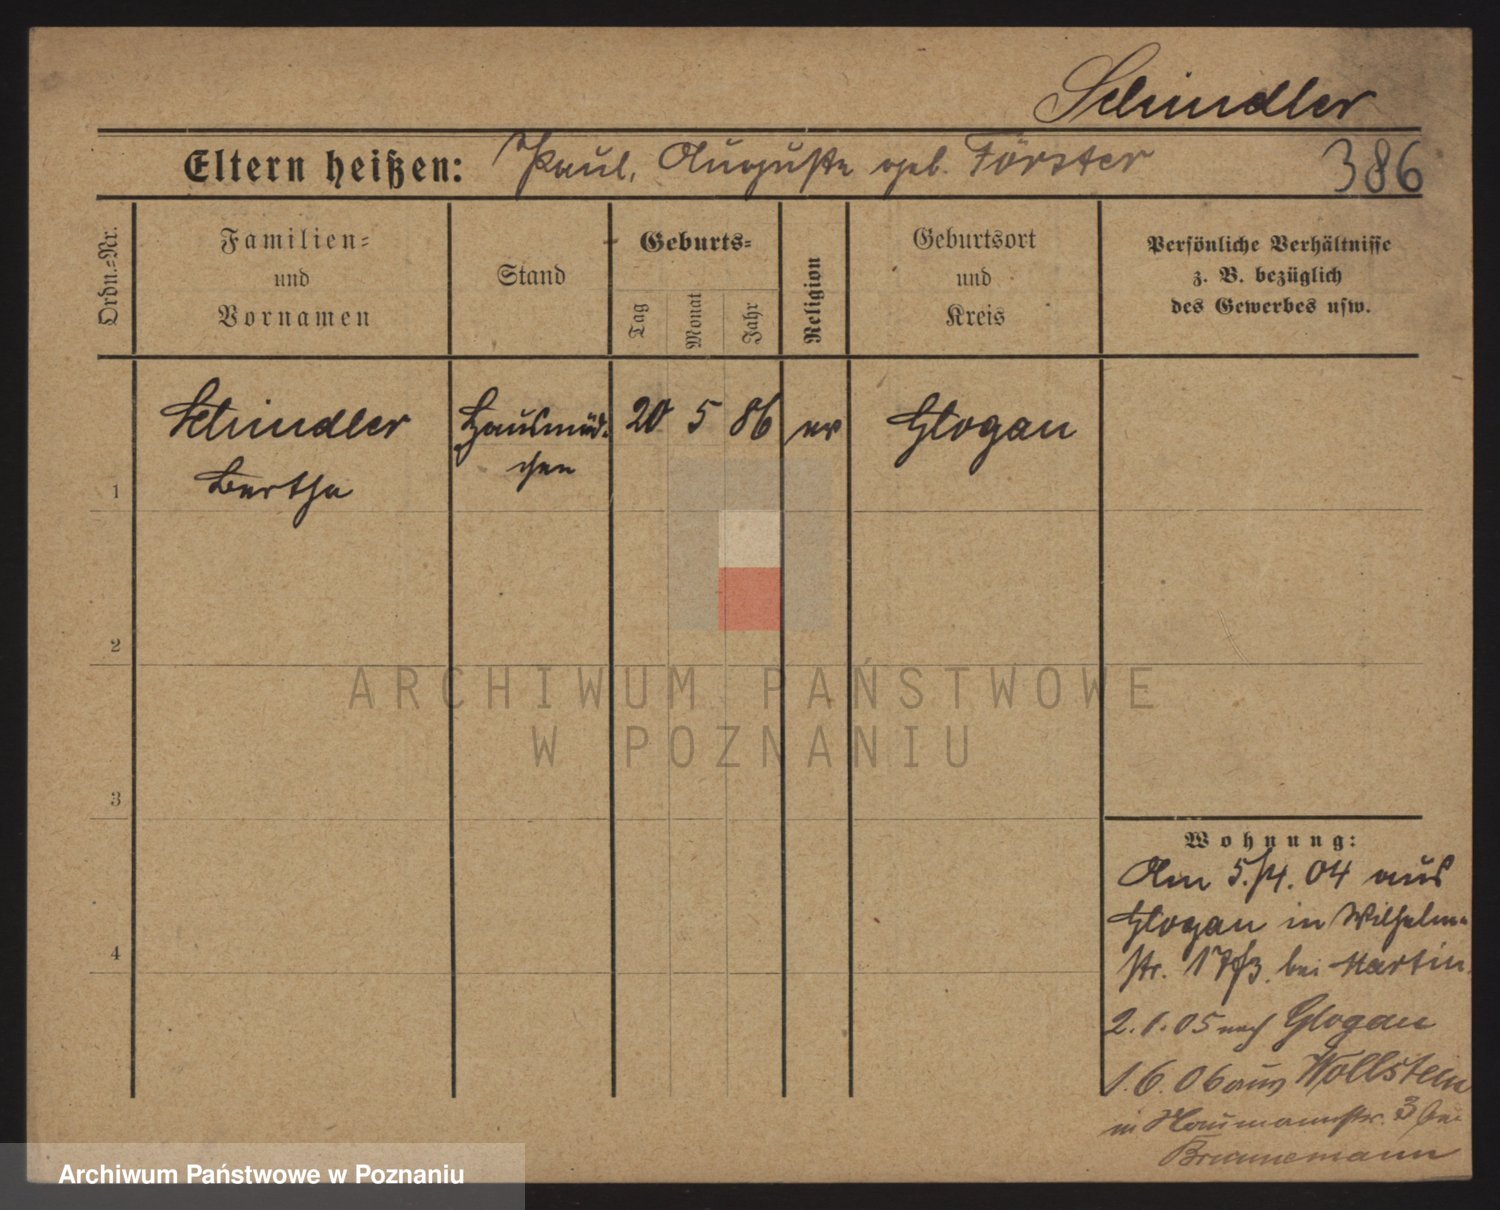 Schindler
Eltern heißen: Paul, Auguste geb. Förster 386
Ordn.-Nr.
Familien-
und
Vornamen
Stand
Geburts-
Tag
Monat
Jahr
Religion
Geburtsort
und
Kreis
Persönliche Verhältnisse
z. B. bezüglich
des Gewerbes usw.
Schindler Hausmäd- 20 5 86 ev Glogau
chen
1 Bertha
2
3
4
Wohnung:
Am 5./4. 04 aus
Glogau in Wilhelm-
str. 17/3. bei Martin.
2.1.05 nach Glogau
1.6.06 aus Wollstein
in Naumannstr. 3 bei
Brunnemann
ARCHIWUM PAŃSTWOWE
W POZNANIU
Archiwum Państwowe w Poznaniu